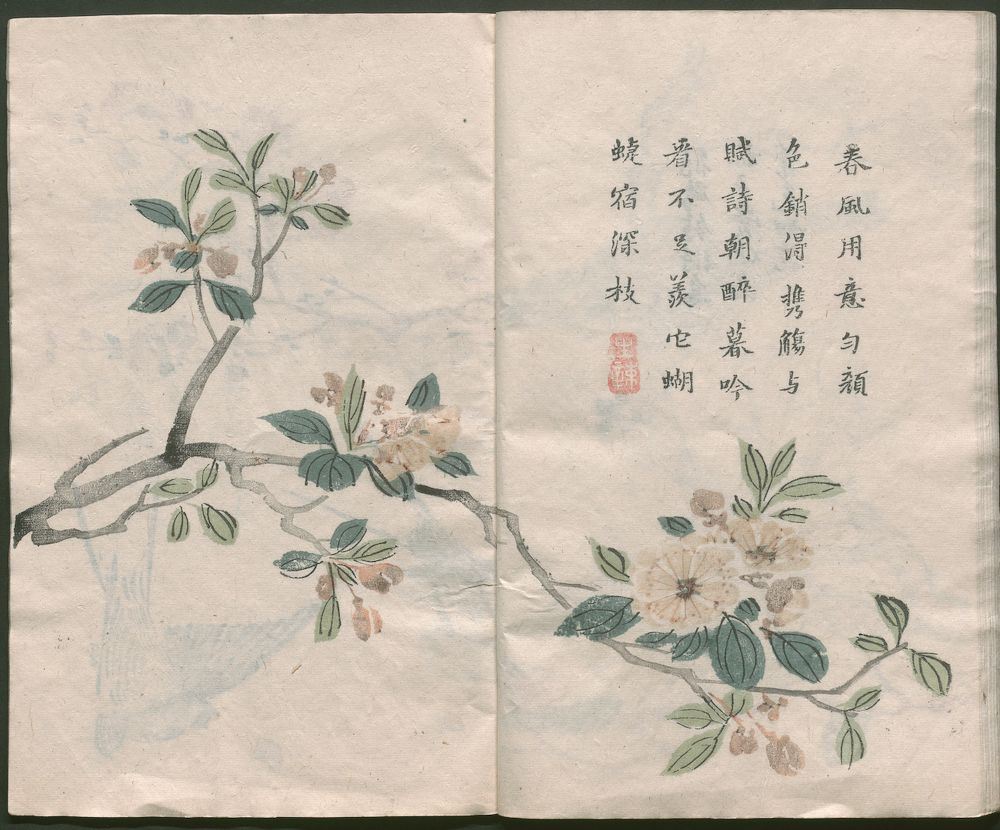 春風用意勻顏
色銷得攜觴与
賦詩朝醉暮吟
看不足羨它蝴
蜨宿深枝